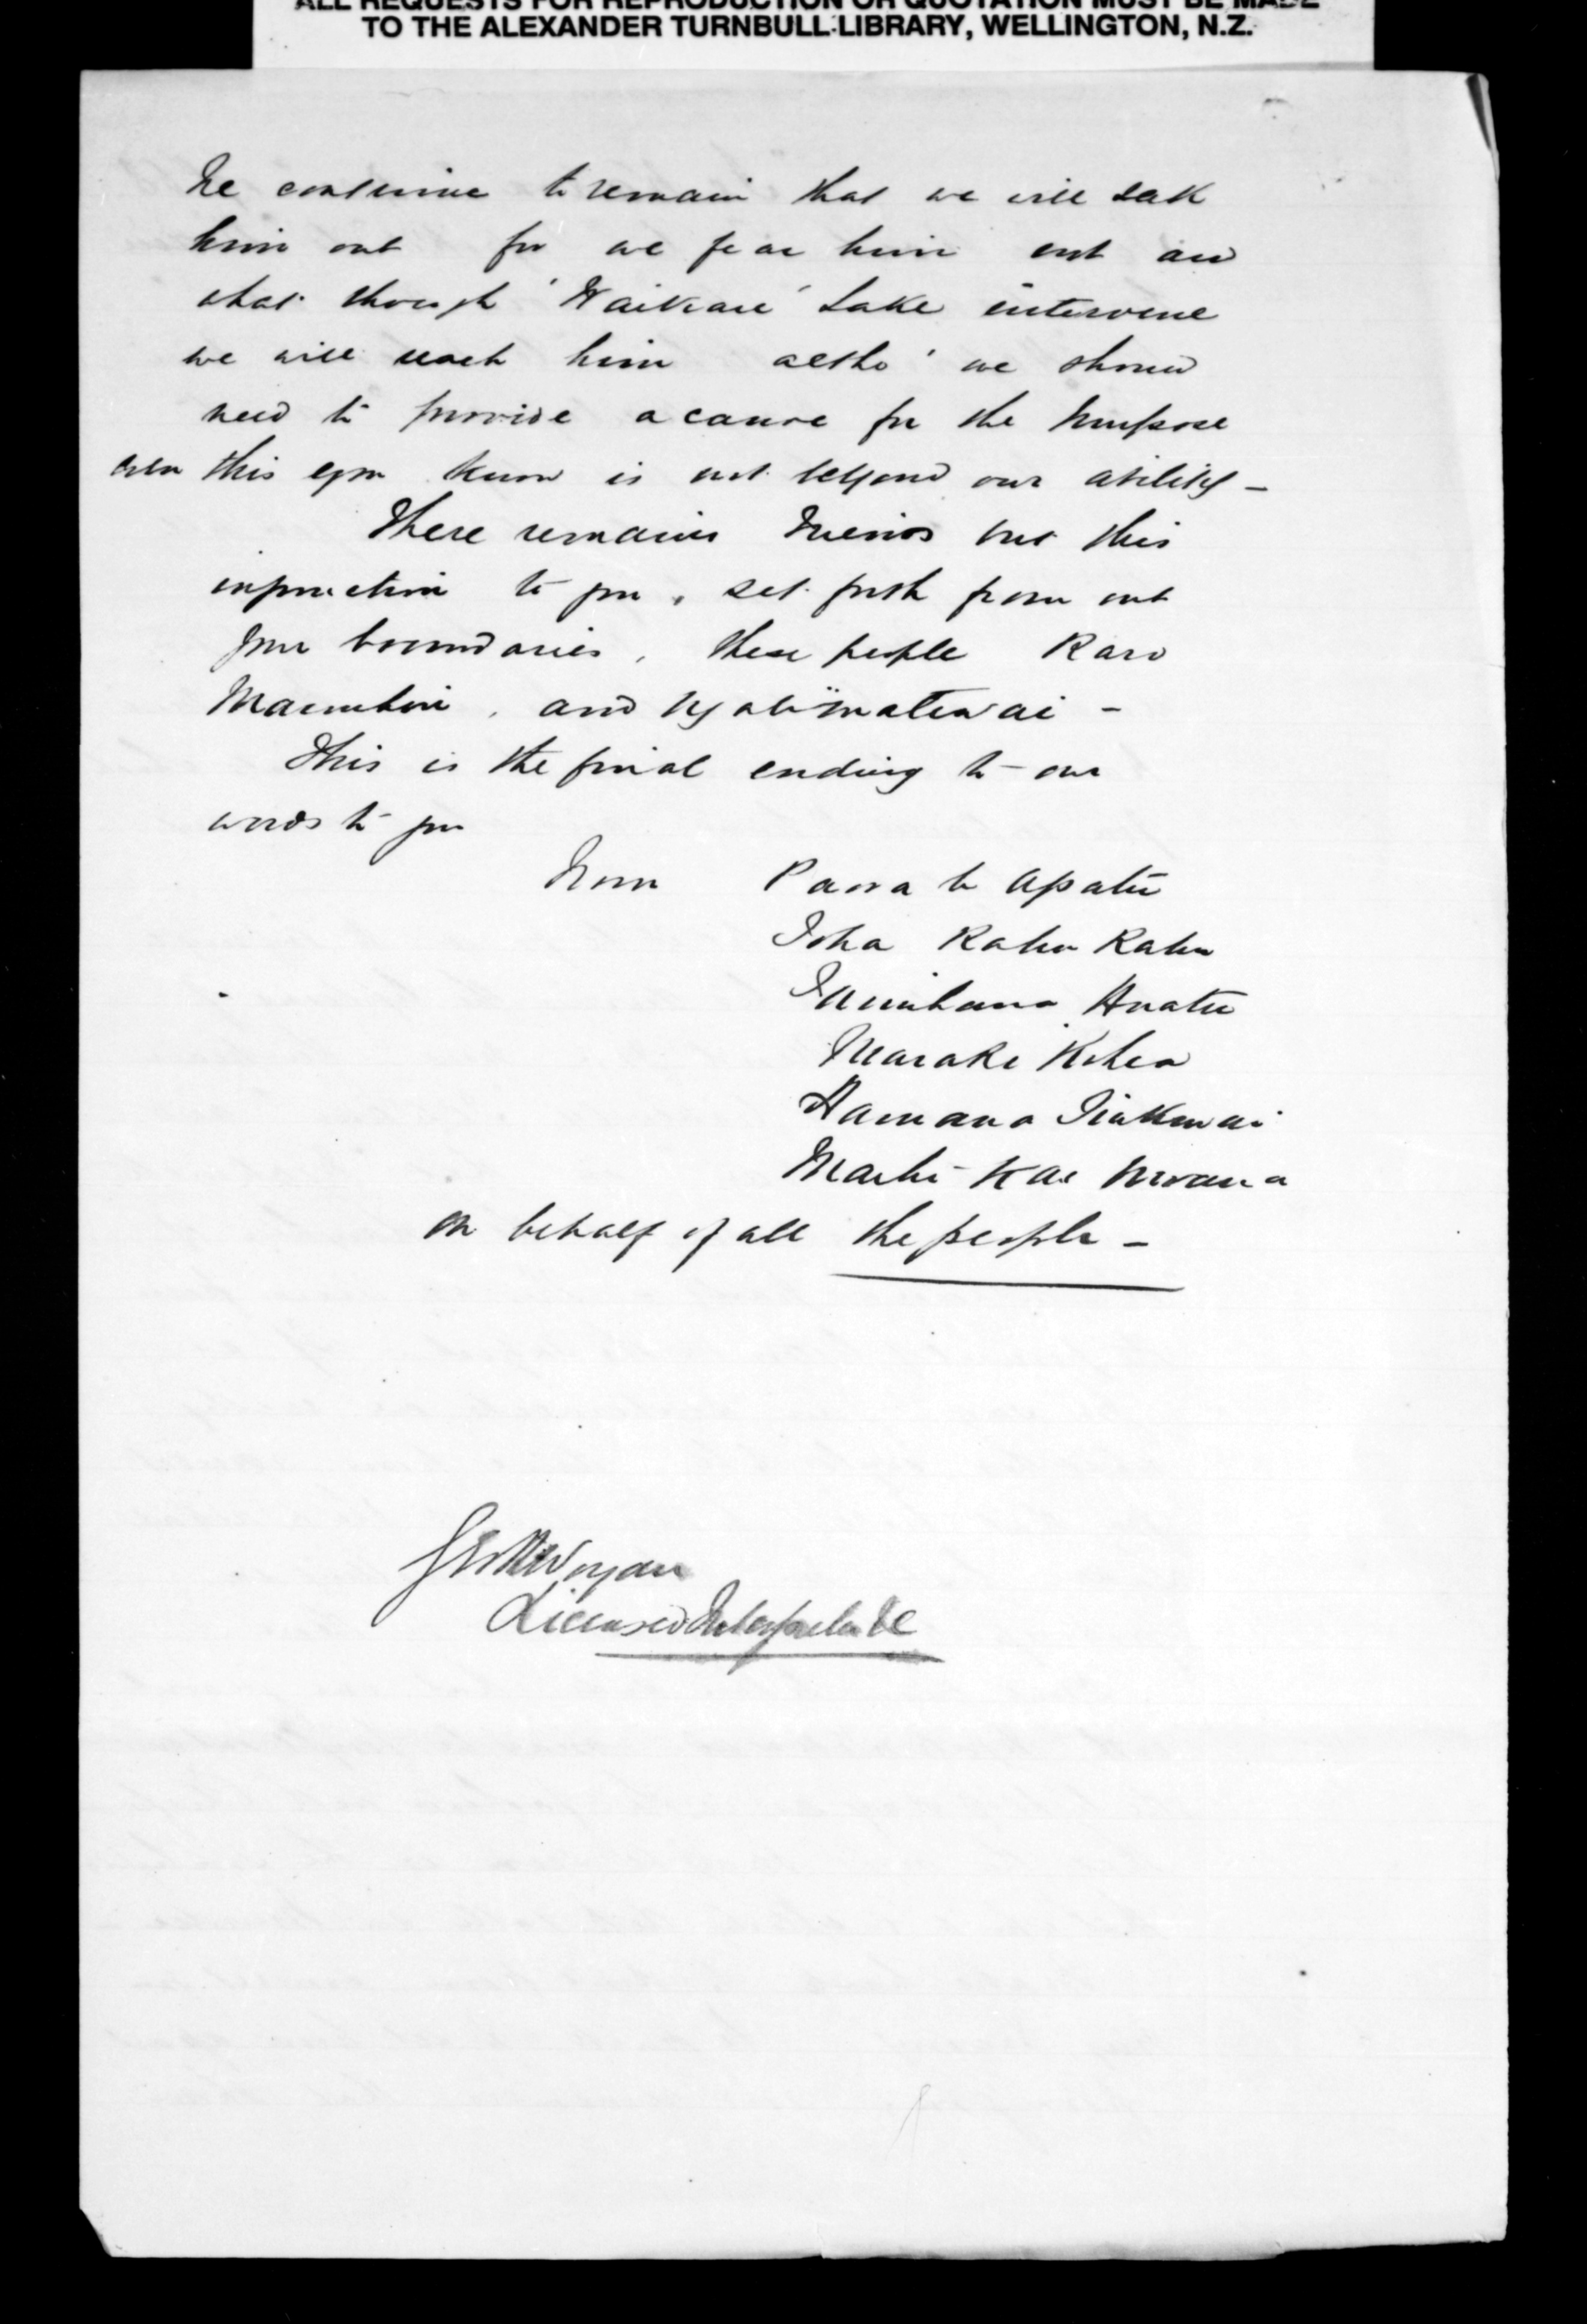 ALL REQUESTS FOR REPRODUCTION OR QUOTATION MUST BE MADE
TO THE ALEXANDER TURNBULL LIBRARY, WELLINGTON, N.Z.
he continue to remain that we will seek
him out for we fear him not and
what though 'Waikare' Lake intervene
we will reach him altho' we should
need to provide a canoe for the purpose
even this you know is not beyond our ability -
There remains Friends but this
injunction to you, set forth from out
your boundaries, these people Karo
and
This is the final ending to our
words to you
From Paora te Apatu
Ioha Kahu Kahu
Tamihana Huata
Maraki Kohea
Hamana Tiakiwai
Maihi Kai Moana
on behalf of all the people -
Licensed Interpreter &c